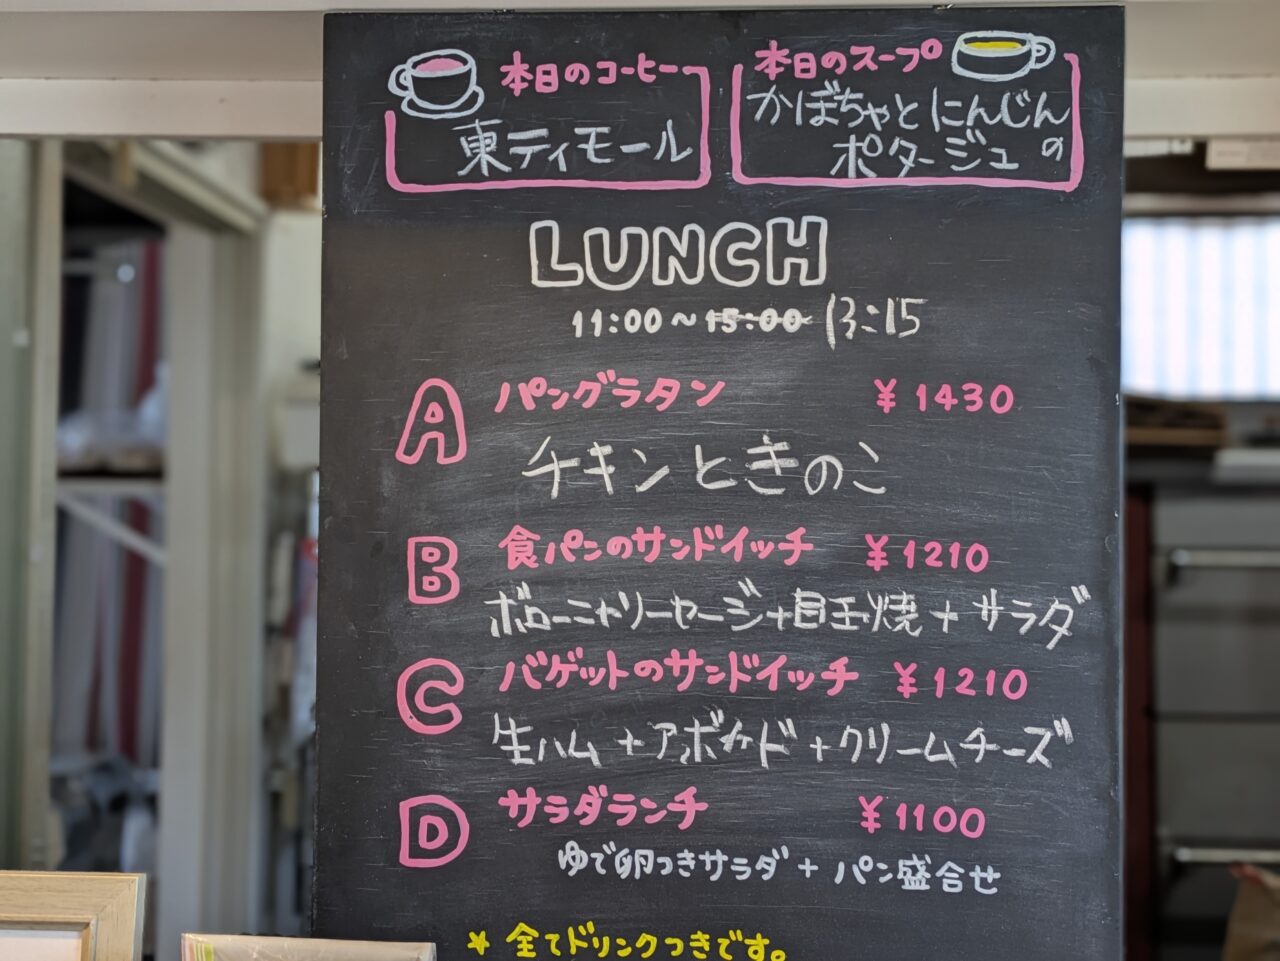 本日のコーヒー
東ティモール
本日のスープ
かぼちゃとにんじんの
ポタージュ
LUNCH
11:00～15:00 13:15
A パングラタン ¥1430
チキンときのこ
B 食パンのサンドイッチ ¥1210
ボローニャソーセージ+目玉焼+サラダ
C バゲットのサンドイッチ ¥1210
生ハム+アボカド+クリームチーズ
D サラダランチ ¥1100
ゆで卵つきサラダ+パン盛合せ
*全てドリンクつきです。